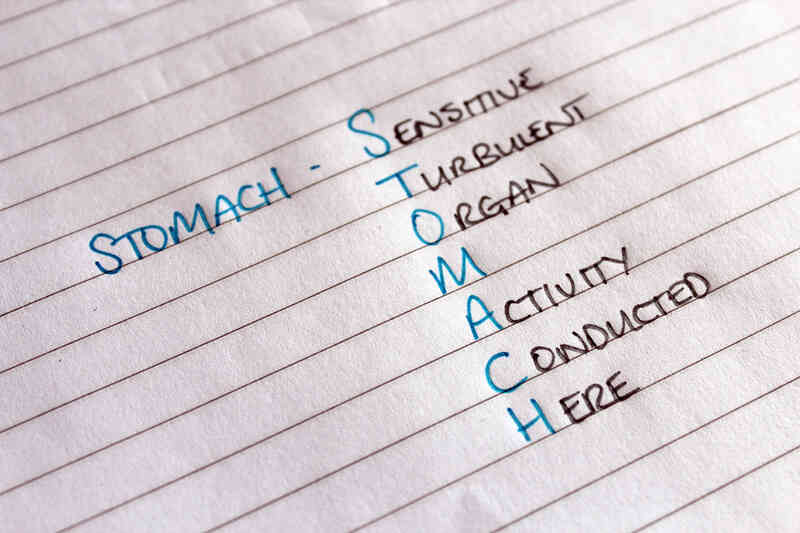 STOMACH - SENSITIVE
TURBULENT
ORGAN
M
ACTIVITY
CONDUCTED
HERE